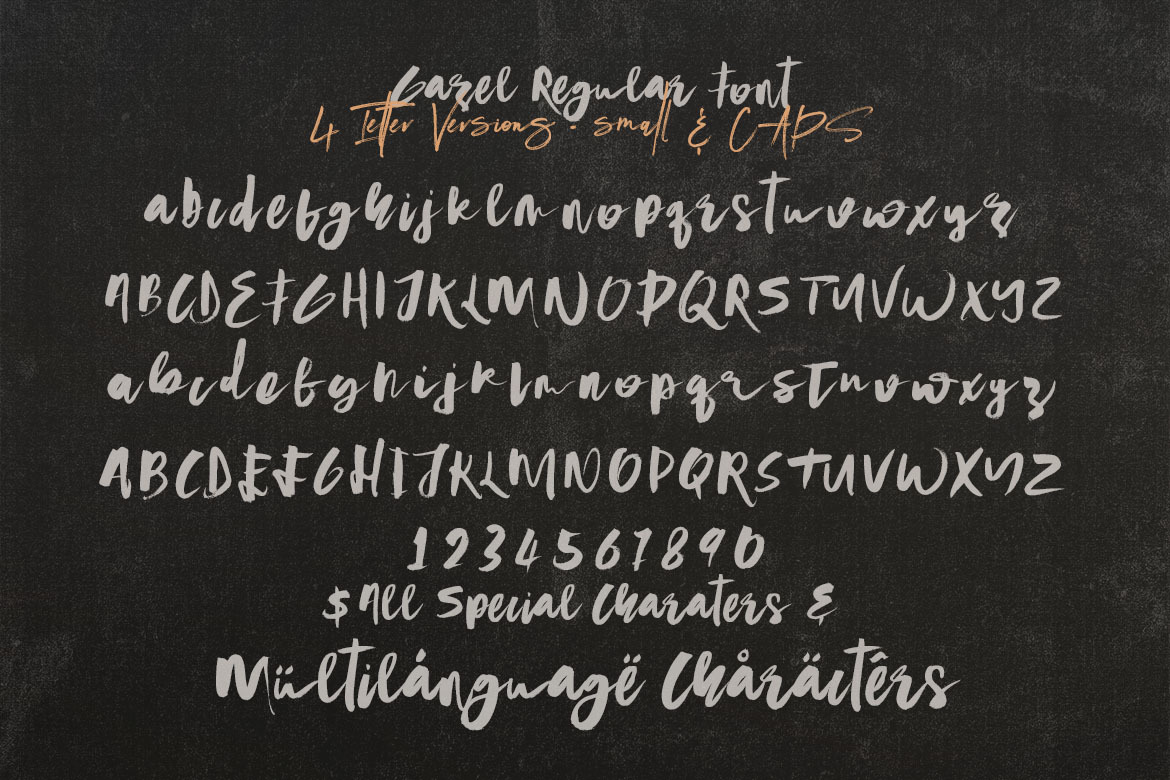 Garel Regular Font
4 letter Versions . small & CAPS
abcdefghijklmnopqrstuvwxyz
ABCDEFGHIJKLMNOPQRSTUVWXYZ
abcdefghijklmnopqrstuvwxyz
ABCDEFGHIJKLMNOPQRSTUVWXYZ
1234567890
$ All Special Charaters &
Mültilánguagë Chåräctérs